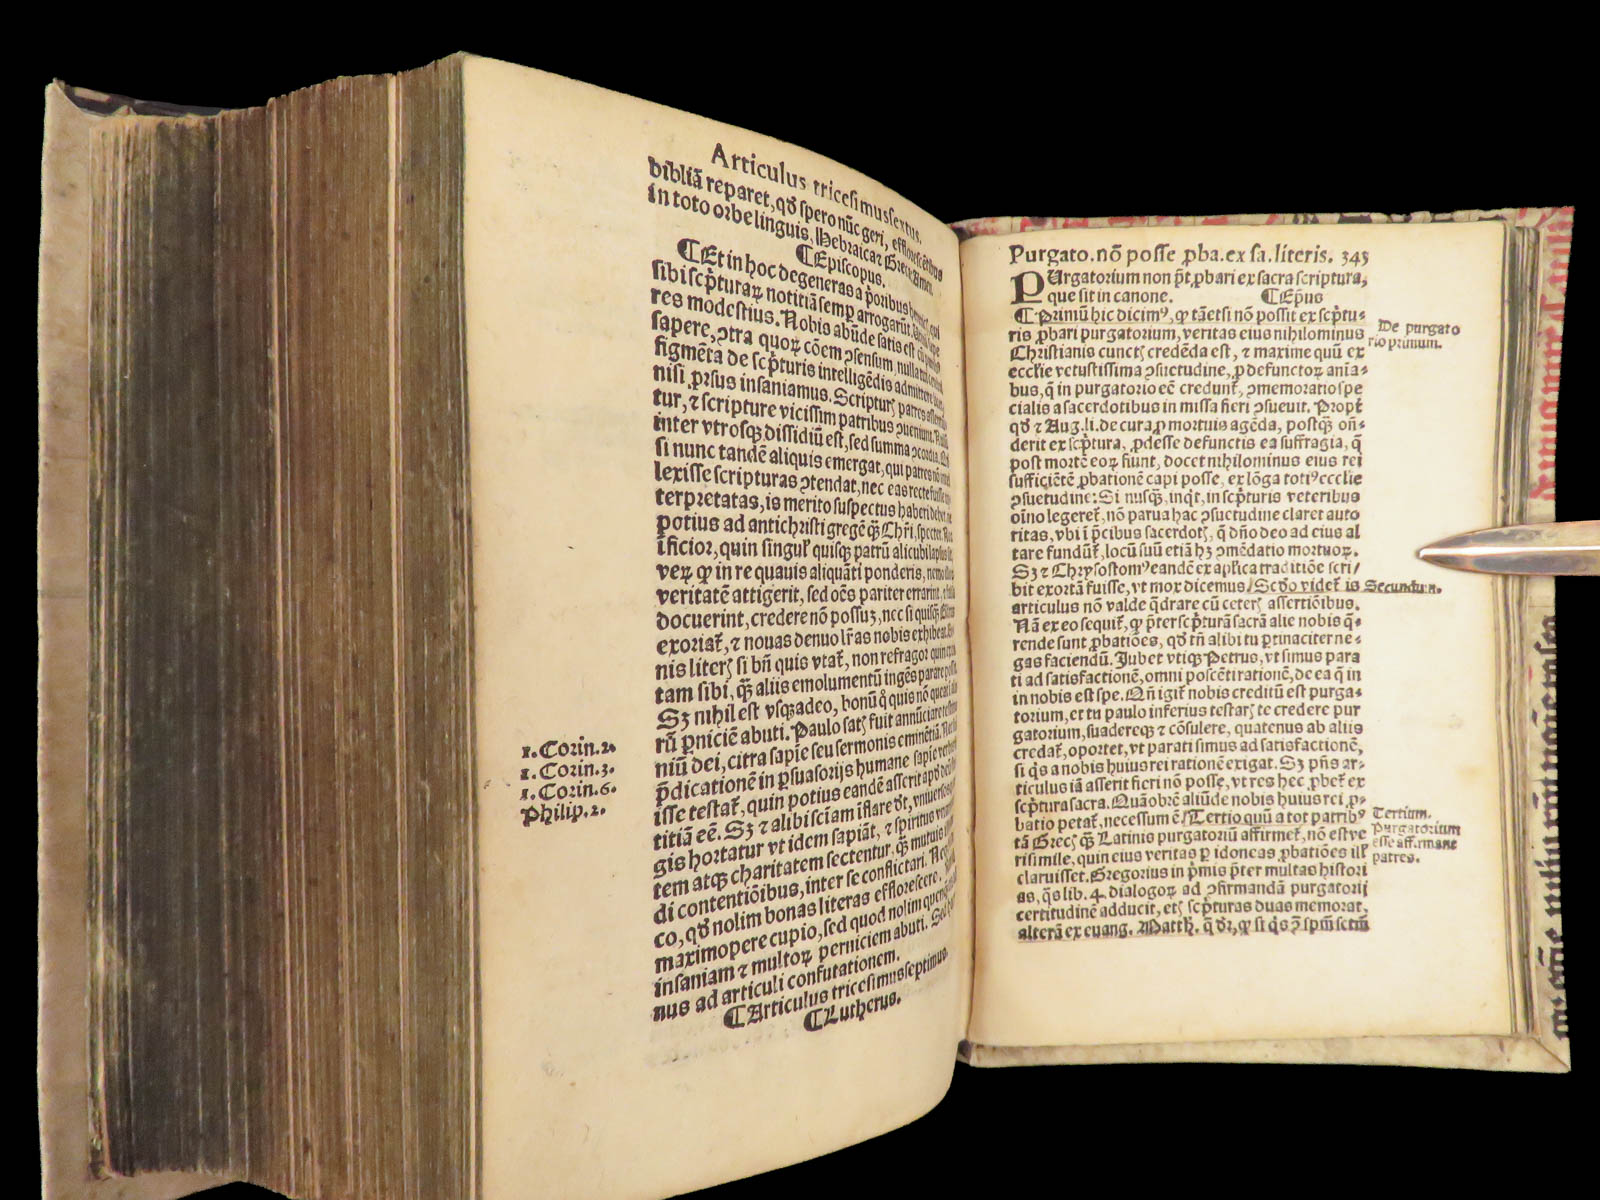 Articulus tricesimussextus.
bibliā reparet, qď spero nūc geri, efflorescētibus
in toto orbe linguis, Hebraica Greca
⸿Episcopus.
⸿Et in hoc degeneras a prioribus
sibi scpturaꝝ notitiā semp arrogarūt
res modestius. Nobis abūde satis est
sapere, ꝯtra quoꝝ cōem ꝯsensum, nulla
figmēta de scpturis intelligēdis admittere
nisi prsus insaniamus. Scripturis patres
tur, ⁊ scripture vicissim patribus ꝯueniunt.
inter vtrosqꝫ dissidiū est, sed summa ꝯcordia.
si nunc tandē aliquis emergat, qui patres nō
lexisse scripturas ꝯtendat, nec eas recte fuisse
terpretatas, is merito suspectus haberi debet
potius ad antichristi gregē qꝫ Chri, spectet.
ificior, quin singul quisqꝫ patrū alicubi lapsus
veꝝ ꝙ in re quauis aliquāti ponderis, nemo
veritatē attigerit, sed oēs pariter errarint,
docuerint, credere nō possuꝫ, nec si quisqꝫ
exoriat, ⁊ nouas denuo lras nobis exhibeat.
nis literis si bn quis vtat, non refragor quin
tam sibi, qꝫ aliis emolumentū ingēs parare
Sꝫ nihil est vsqꝫadeo, bonū quis nō queat
rū pniciē abuti. Paulo satis fuit annūciare
niū dei, citra sapie seu sermonis eminētiā.
pdicationē in psuasorijs humane sapie verbis
isse testat, quin potius eandē asserit apď deū
titiā eē. Sꝫ ⁊ alibi sciam iflare dt, vniuersos
gis hortatur vt idem sapiāt, ⁊ spiritus
tem atqꝫ charitatem sectentur, qꝫ mutuis
di contentiōibus, inter se conflictari. Neqꝫ
co, qď nolim bonas literas efflorescere,
maximopere cupio, sed quod nolim quenqꝫ
insaniam ⁊ multoꝝ perniciem abuti. Sed
nus ad articuli confutationem.
⸿Articulus tricesimusseptimus.
⸿Lutherus.
1. Corin. 2.
1. Corin. 3.
1. Corin. 6.
Philip. 2.
Purgato. nō posse pba. ex sa. literis. 343
PUrgatorium non pt pbari ex sacra scriptura,
que sit in canone. ⸿Epus
⸿Primū hic dicimꝰ, ꝙ tāetsi nō possit ex scptu-
ris pbari purgatorium, veritas eius nihilominus
Christianis cunctis credēda est, ⁊ maxime quū ex
ecclie vetustissima ꝯsuetudine, p defunctoꝝ anīa-
bus, q̄ in purgatorio eē credunt, ꝯmemoratio spe
cialis a sacerdotibus in missa fieri ꝯsueuit. Propt
qď ⁊ Aug. li. de cura p mortuis agēda, postqꝫ oñ-
derit ex scptura, pdesse defunctis ea suffragia, q̄
post mortē eoꝝ fiunt, docet nihilominus eius rei
sufficiētē pbationē capi posse, ex lōga totiꝰ ecclie
ꝯsuetudine: Si nusqꝫ, inqt, in scpturis veteribus
oīno legeret, nō parua hac ꝯsuetudine claret auto
ritas, vbi i pcibus sacerdotis, q̄ dño deo ad eius al
tare fundūt, locū suū etiā hꝫ ꝯmēdatio mortuoꝝ.
Sꝫ ⁊ Chrysostomꝰ eandē ex aplica traditiōe scri-
bit exortā fuisse, vt mox dicemus / Scďo videt is
articulus nō valde qdrare cū ceteris assertiōibus.
Nā ex eo sequit, ꝙ pter scpturā sacrā alie nobis q̄-
rende sunt pbatiōes, qď tñ alibi tu ptinaciter ne-
gas faciendū. Jubet vtiqꝫ Petrus, vt simus para
ti ad satisfactionē, omni poscēti rationē, de ea q̄ in
in nobis est spe. Qñ igit nobis creditū est purga-
torium, et tu paulo inferius testaris te credere pur
gatorium, suadereqꝫ ⁊ cōsulere, quatenus ab aliis
credat, oportet, vt parati simus ad satisfactionē,
si qs a nobis huius rei rationē exigat. Sꝫ pñs ar-
ticulus iā asserit fieri nō posse, vt res hec pbet ex
scptura sacra. Quāobrē aliūde nobis huius rei, p-
batio petat, necessum ē / Tertio quū a tot patribꝰ
tā Grecis qꝫ Latinis purgatoriū affirmet, nō est ve
risimile, quin eius veritas p idoneas pbatiōes ill
claruisset. Gregorius in pmis pter multas histori
as, q̄s lib. 4. dialogoꝝ ad ꝯfirmandā purgatorij
certitudinē adducit, etis scpturas duas memorat,
alterā ex euang. Matth. q̄ dr, ꝙ si qs ꝯ spm sctm
De purgato
rio primum.
Secundum.
Tertium.
Purgatorium
esse affirmant
patres.